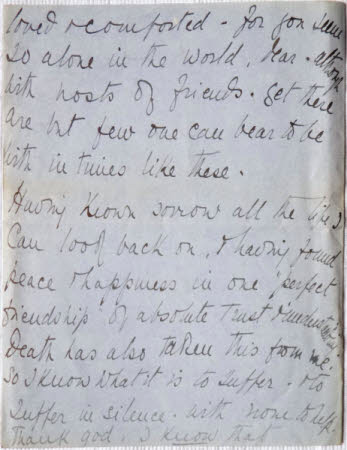 loved & comforted - for you seem
so alone in the world, dear - although
with hosts of friends - yet there
are but few one can bear to be
with in times like these.
Having known sorrow all the life I
can look back on, & having found
peace & happiness in one "perfect
friendship" of absolute trust &
Death has also taken this from me.
So I know what it is to suffer - & to
suffer in silence - with none to help.
Thank God, I know that